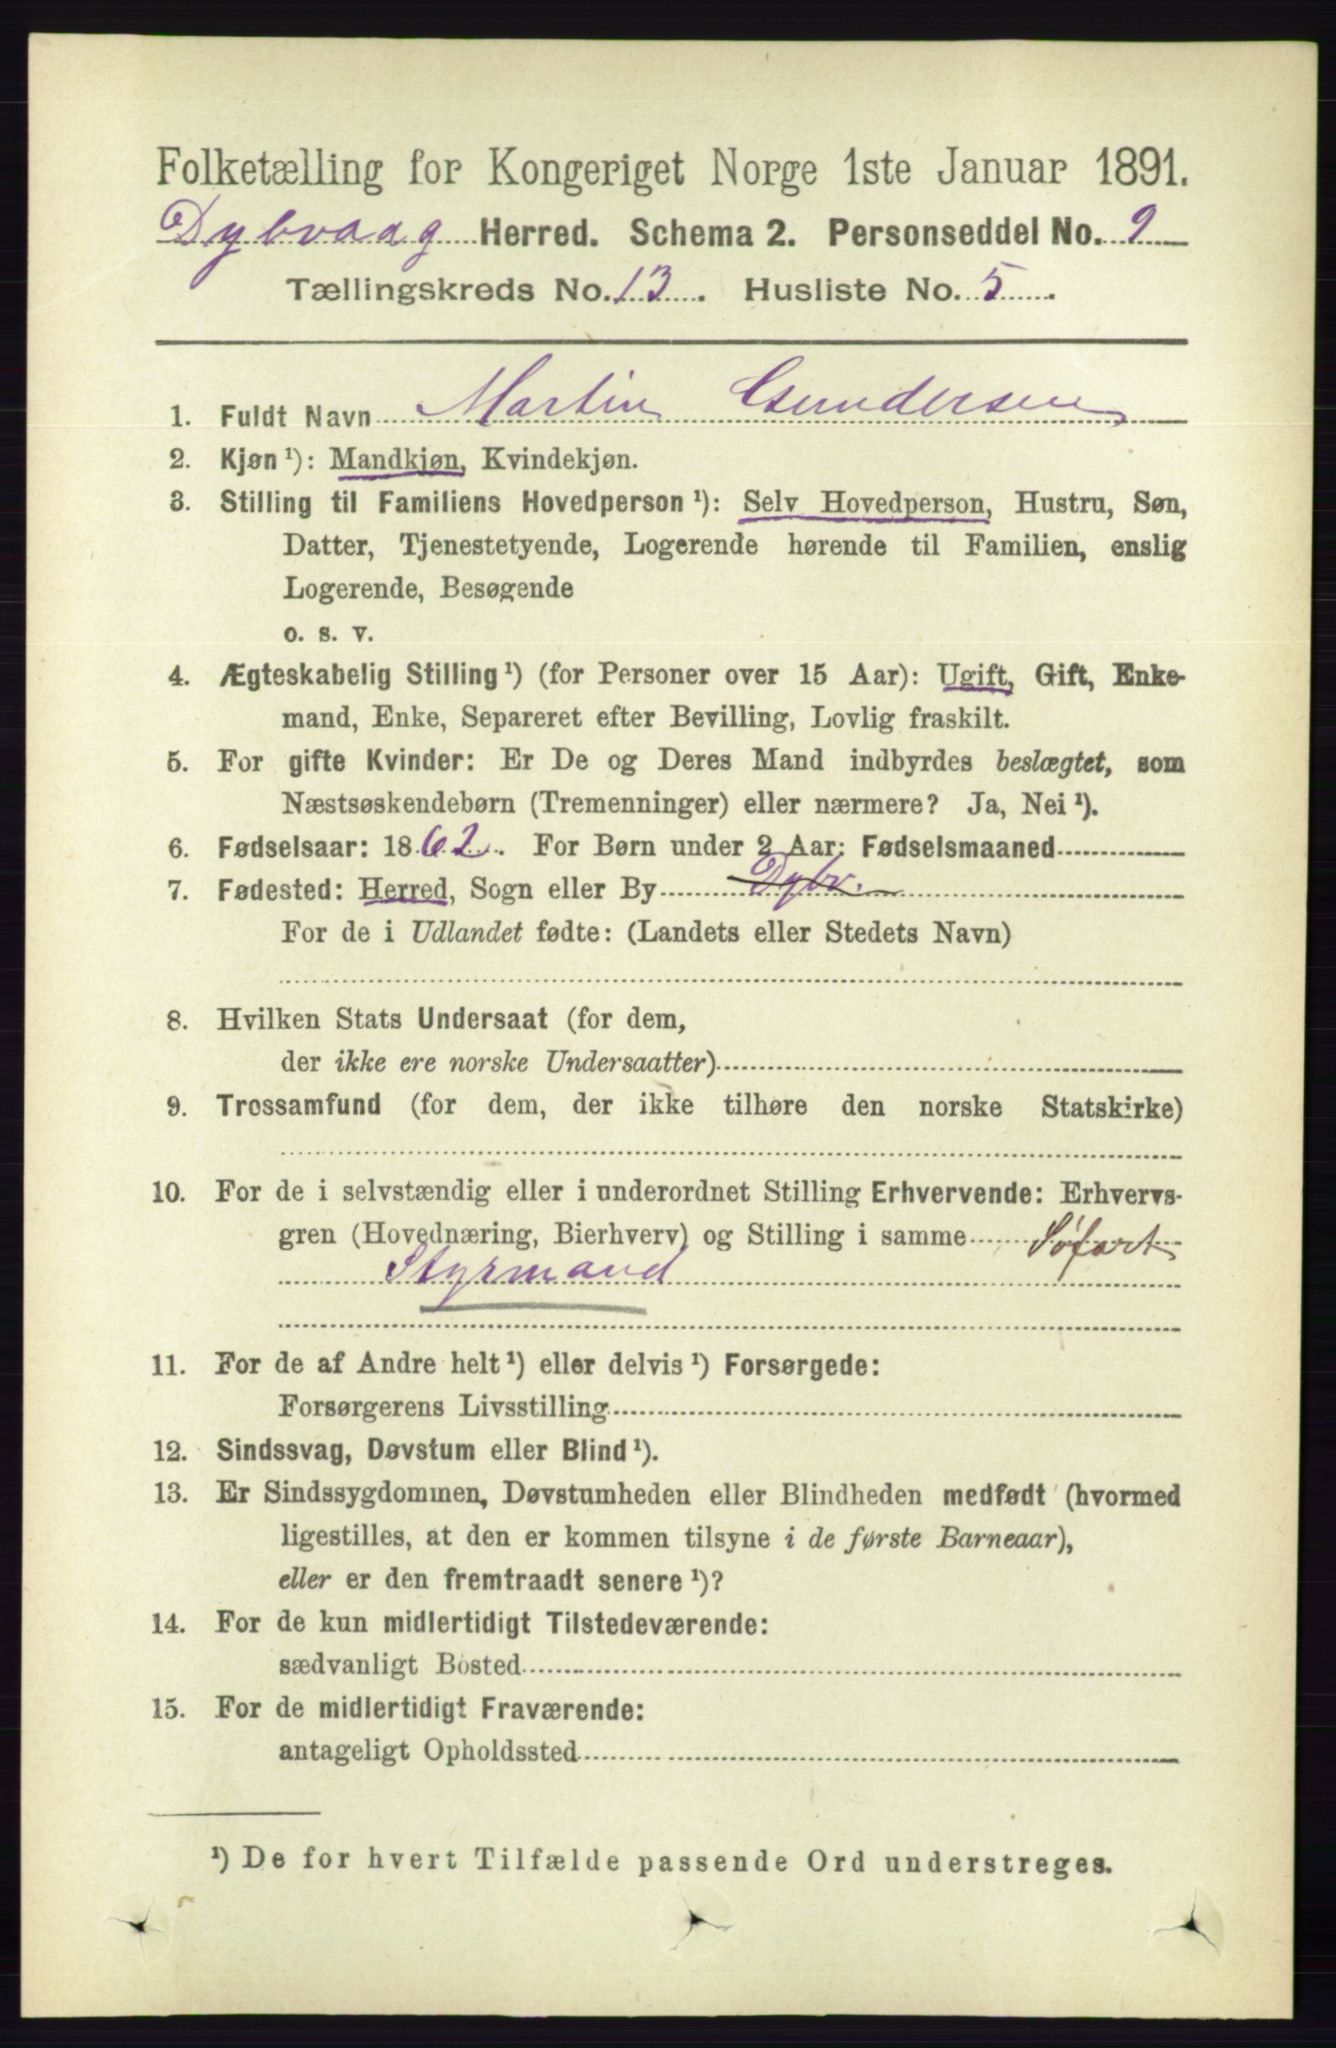 Folketælling for Kongeriget Norge 1ste Januar 1891.
Dybvaag Herred. Schema 2. Personseddel No. 9
Tællingskreds No. 13. Husliste No. 5.
1. Fuldt Navn Martin Gundersen
2. Kjøn ¹): Mandkjøn, Kvindekjøn.
3. Stilling til Familiens Hovedperson ¹): Selv Hovedperson, Hustru, Søn,
Datter, Tjenestetyende, Logerende hørende til Familien, enslig
Logerende, Besøgende
o. s. v.
4. Ægteskabelig Stilling ¹) (for Personer over 15 Aar): Ugift, Gift, Enke-
mand, Enke, Separeret efter Bevilling, Lovlig fraskilt.
5. For gifte Kvinder: Er De og Deres Mand indbyrdes beslægtet, som
Næstsøskendebørn (Tremenninger) eller nærmere? Ja, Nei ¹).
6. Fødselsaar: 1862. For Børn under 2 Aar: Fødselsmaaned
7. Fødested: Herred, Sogn eller By Dybv.
For de i Udlandet fødte: (Landets eller Stedets Navn)
8. Hvilken Stats Undersaat (for dem,
der ikke ere norske Undersaatter)
9. Trossamfund (for dem, der ikke tilhøre den norske Statskirke)
10. For de i selvstændig eller i underordnet Stilling Erhvervende: Erhvervs-
gren (Hovednæring, Bierhverv) og Stilling i samme Søfart
Styrmand
11. For de af Andre helt ¹) eller delvis ¹) Forsørgede:
Forsørgerens Livsstilling
12. Sindssvag, Døvstum eller Blind ¹).
13. Er Sindssygdommen, Døvstumheden eller Blindheden medfødt (hvormed
ligestilles, at den er kommen tilsyne i de første Barneaar),
eller er den fremtraadt senere ¹)?
14. For de kun midlertidigt Tilstedeværende:
sædvanligt Bosted
15. For de midlertidigt Fraværende:
antageligt Opholdssted
¹) De for hvert Tilfælde passende Ord understreges.